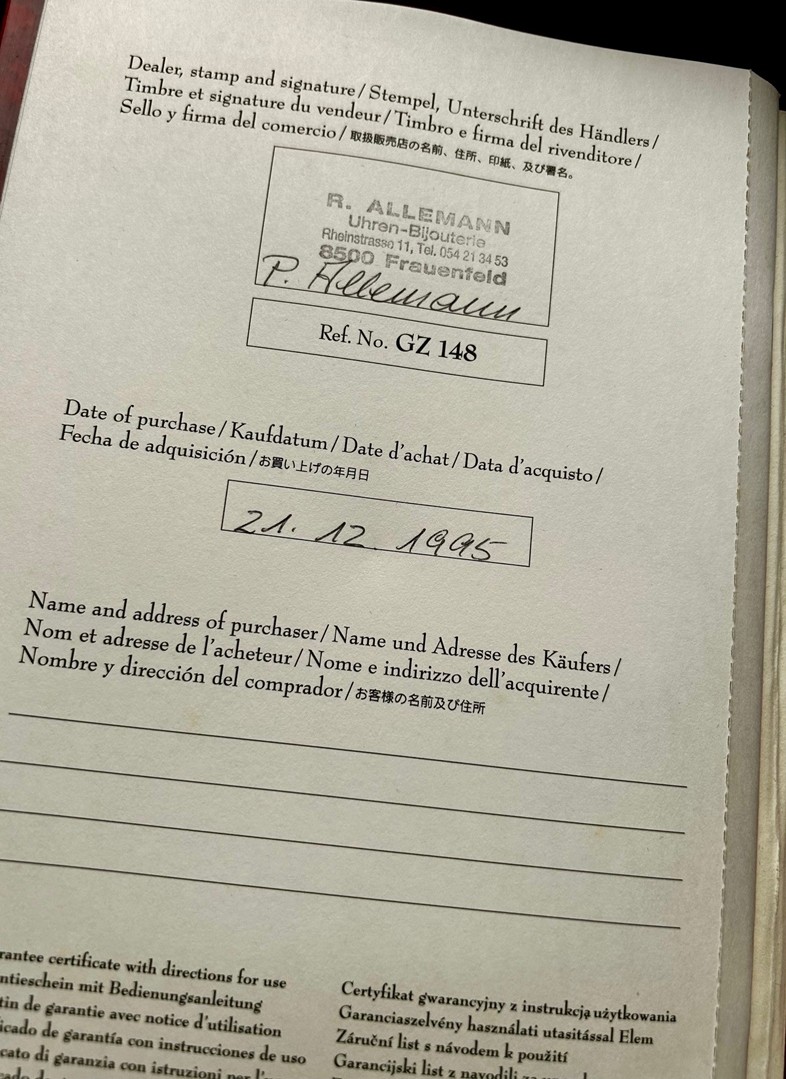 Dealer, stamp and signature / Stempel, Unterschrift des Händlers /
Timbre et signature du vendeur / Timbro e firma del rivenditore /
Sello y firma del comercio / 取扱販売店の名前、住所、印紙、及び署名。
R. ALLEMANN
Uhren-Bijouterie
Rheinstrasse 11, Tel. 054 21 34 53
8500 Frauenfeld
P. Allemann
Ref. No. GZ 148
Date of purchase / Kaufdatum / Date d'achat / Data d'acquisto /
Fecha de adquisición / お買い上げの年月日
21. 12. 1995
Name and address of purchaser / Name und Adresse des Käufers /
Nom et adresse de l'acheteur / Nome e indirizzo dell'acquirente /
Nombre y dirección del comprador / お客様の名前及び住所
rantee certificate with directions for use
ntieschein mit Bedienungsanleitung
tin de garantie avec notice d'utilisation
icado de garantía con instrucciones de uso
cato di garanzia con istruzioni per l'
Certyfikat gwarancyjny z instrukcją użytkowania
Garanciaszelvény használati utasitással Elem
Záruční list s návodem k použití
Garancijski list z navodili